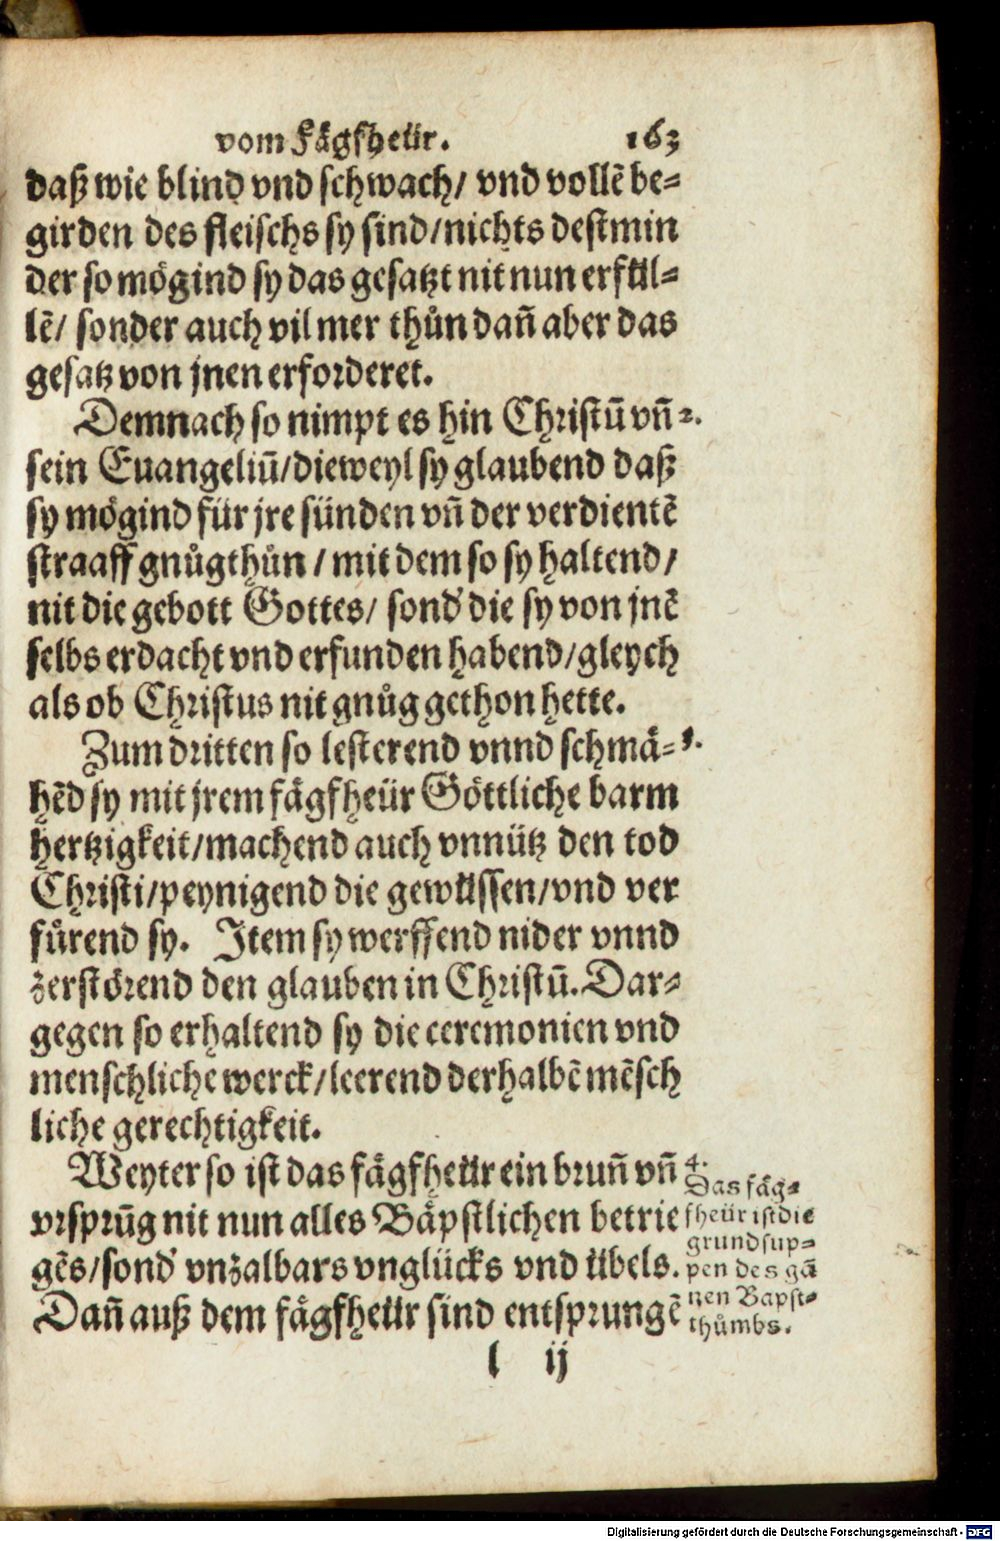 vom Fägfheür. 163
daß wie blind vnd schwach/ vnd vollẽ be=
girden des fleischs sy sind/nichts destmin
der so mögind sy das gesatzt nit nun erfül=
lẽ/ sonder auch vil mer thůn dañ aber das
gesatz von jnen erforderet.
Demnach so nimpt es hin Christũ vñ 2.
sein Euangeliũ/dieweyl sy glaubend daß
sy mögind für jre sünden vñ der verdientẽ
straaff gnůgthůn / mit dem so sy haltend/
nit die gebott Gottes/ sond' die sy von jnẽ
selbs erdacht vnd erfunden habend/gleych
als ob Christus nit gnůg gethon hette.
Zum dritten so lesterend vnnd schmä= 3.
hẽd sy mit jrem fägfheür Göttliche barm
hertzigkeit/machend auch vnnütz den tod
Christi/peynigend die gewüssen/vnd ver
fürend sy. Item sy werffend nider vnnd
zerstörend den glauben in Christũ. Dar=
gegen so erhaltend sy die ceremonien vnd
menschliche werck/leerend derhalbẽ mẽsch
liche gerechtigkeit.
Weyter so ist das fägfheür ein bruñ vñ
vrsprũg nit nun alles Bäpstlichen betrie
gẽs/sond' vnzalbars vnglücks vnd übels.
Dañ auß dem fägfheür sind entsprungẽ
4.
Das fäg=
fheür ist die
grundsup=
pen des gã
tzen Bapst=
thůmbs.
l ij
Digitalisierung gefördert durch die Deutsche Forschungsgemeinschaft - DFG